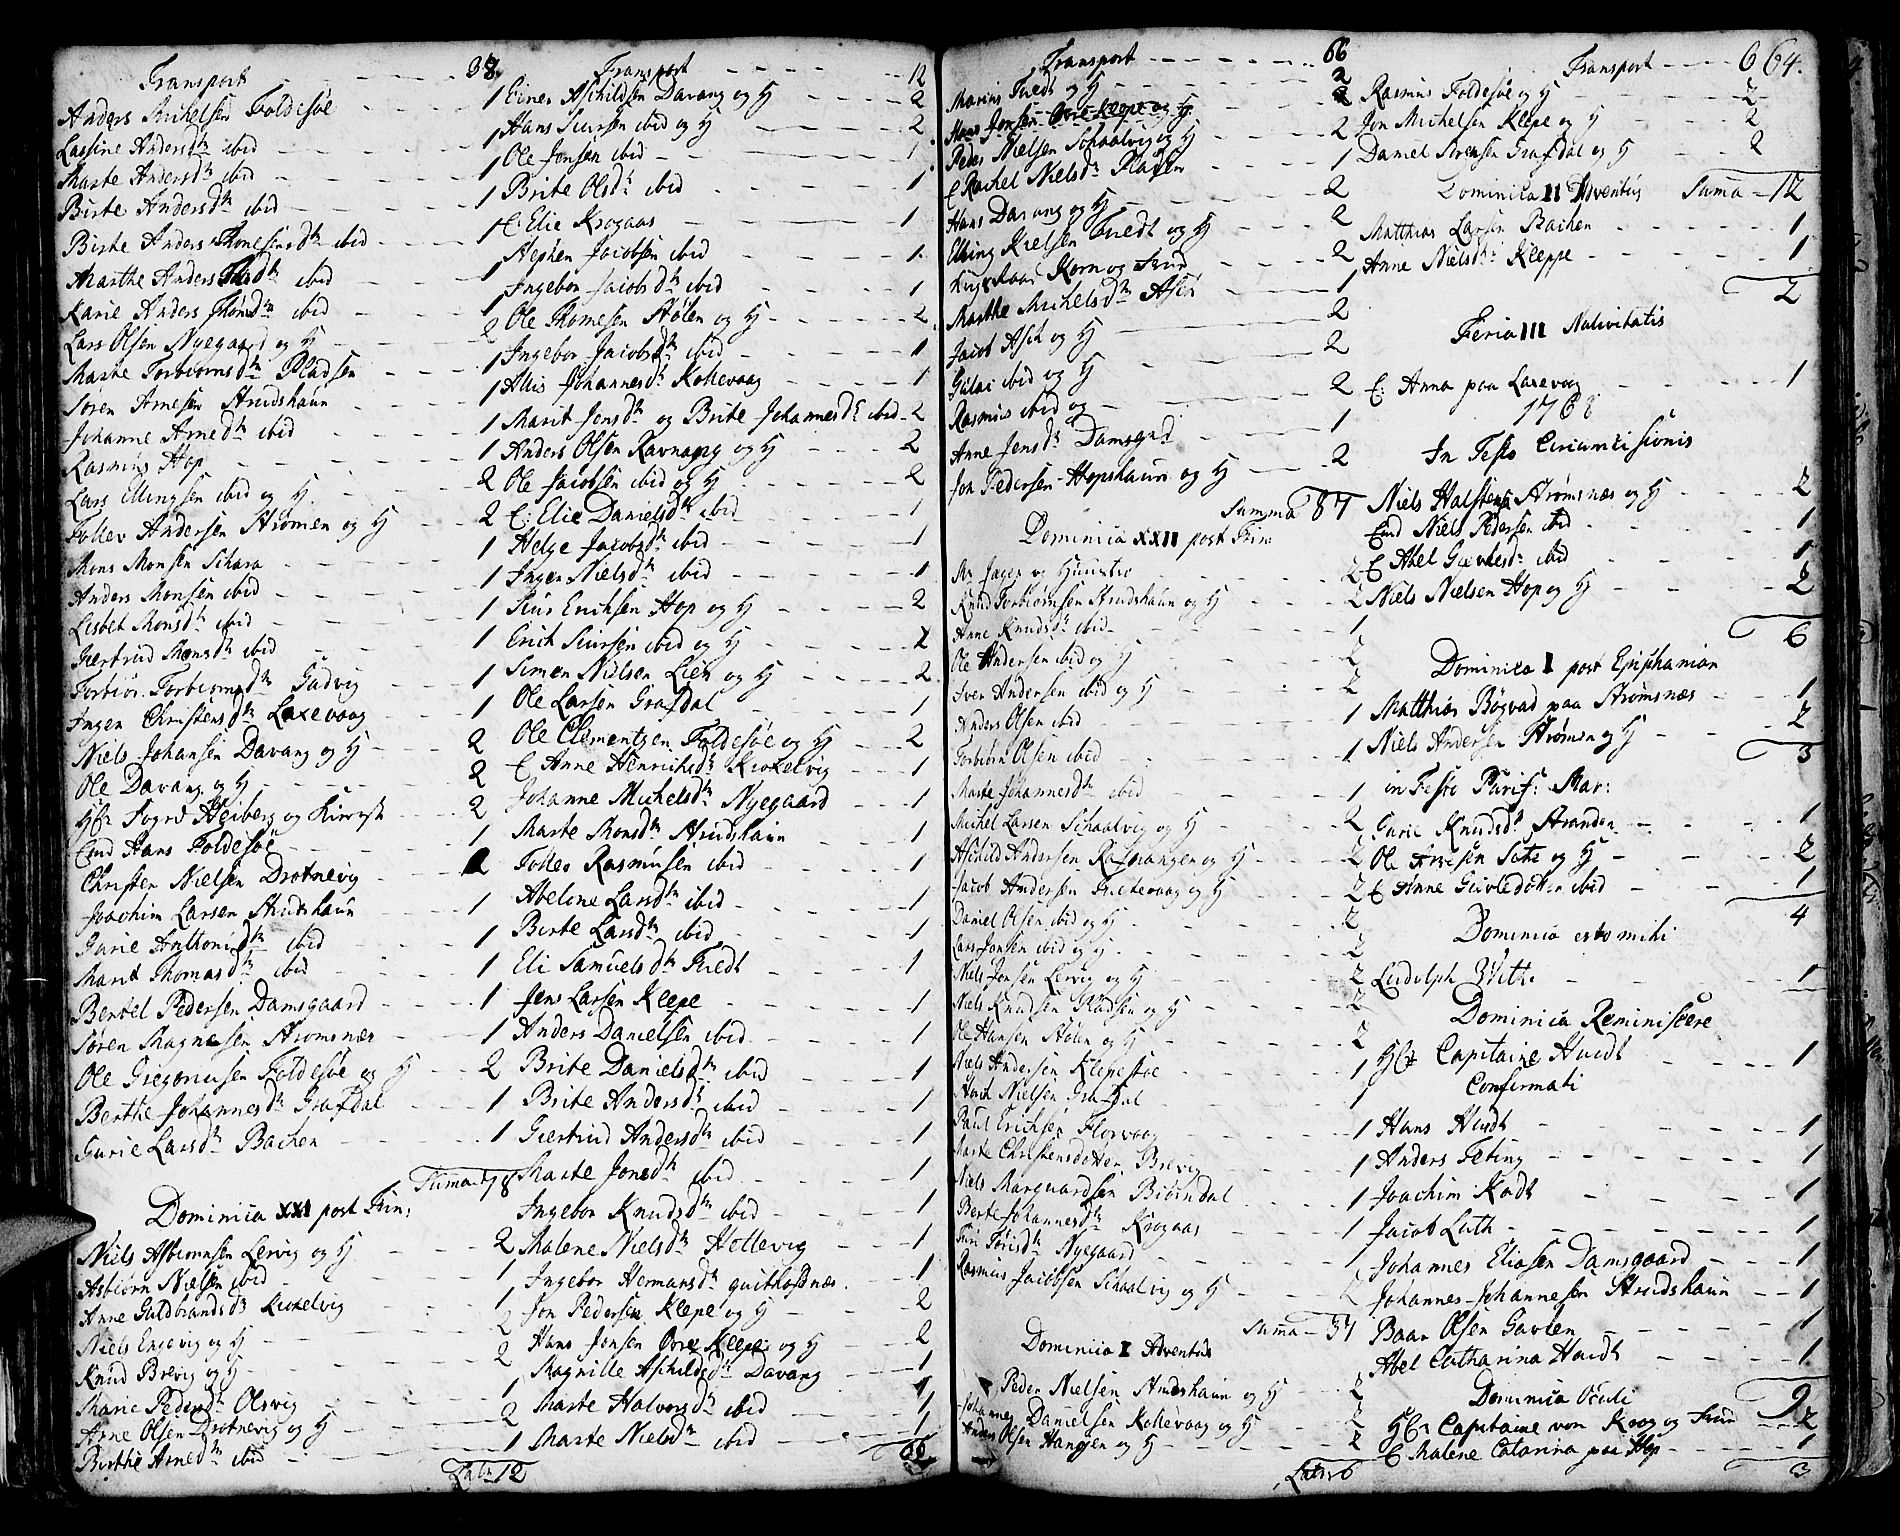 Transport - - - - 38.
Anders Michelsen Foldesøe - - - 1
Lassine Andersdtr ibid - - - 1
Marte Andersdtr ibid - - - 1
Birte Andersdtr ibid - - - 1
Birte Anders Thonesensdtr ibid - - - 1
Marthe Anders dtr ibid - - - 1
Karie Anders dtr ibid - - - 1
Lars Olsen Nyegaard og H - - - 2
Marte Torbiornsdtr Pladsen - - - 1
Søren Arnesen Strudshaun - - - 1
Johanne Arnedtr ibid - - - 1
Rasmus Hop - - - 1
Lars Ellingsen ibid og H - - - 2
Tollev Andersen Strømen og H - - - 2
Mons Monsen Schara - - - 1
Anders Monsen ibid - - - 1
Lisbet Monsdtr ibid - - - 1
Giertrud Monsdtr ibid - - - 1
Torbiør Torbiornsdtr Gadvig - - - 1
Ingen Christensdtr Laxevaag - - - 1
Niels Johansen Davang og H - - - 2
Ole Davang og H - - - 2
Hr Foged Heiberg og - - - 2
Emd Hans Foldesøe - - - 1
Christen Nielsen Drotnevig - - - 1
Joachim Larsen Strudshaun - - - 1
Gurie Anthonisdtr ibid - - - 1
Marit Thomasdtr ibid - - - 1
Bertel Pedersen Damsgaard - - - 1
Søren Magnesen Strømsnæs - - - 1
Ole Gregoriusen Foldesøe og H - - - 2
Berthe Johannesdtr Grafdal - - - 1
Gurie Larsdtr Bachen - - - 1
Suma 78
Dominica XXI post Trin:
Niels Asbiørnsen Lervig og H - - - 2
Asbiørn Nielsen ibid - - - 1
Anne Guldbrandsdtr Kirkelvig - - - 1
Niels Engevig og H - - - 2
Knud Brevig og H - - - 2
Marie Pedersdtr Olsvig - - - 1
Arne Olsen Drotnevig og H - - - 2
Birthe Arnedtr ibid - - - 1
Lats 12
Transport - - - - 12
Einer Aschildsen Davang og H - - - 2
Hans Siursen ibid og H - - - 2
Ole Jonsen ibid - - - 1
Brite Olsdtr ibid - - - 1
E: Elie Krogaas - - - 1
Stephen Jacobsen ibid - - - 1
Ingebor Jacobsdtr ibid - - - 1
Ole Thomesen Stølen og H - - - 2
Ingebor Jacobsdtr ibid - - - 1
Allis Johannesdtr Kollevaag - - - 1
Marit Jensdtr og Brite Johannesdtr ibid - 2
Anders Olsen Ravnang og H - - - 2
Ole Jacobsen ibid og H - - - 2
E: Elie Danielsdtr ibid - - - 1
Helge Jacobsdtr ibid - - - 1
Ingen Nielsdtr ibid - - - 1
Siur Erichsen Hop og H - - - 2
Erich Siursen ibid og H - - - 2
Simen Nielsen Lien og H - - - 2
Ole Larsen Grafdal - - - 1
Ole Clementzen Foldesøe og H - - - 2
E Anne Henrichsdtr Kirkelvig - - - 1
Johanne Michelsdtr Nyegaard - - - 1
Marte Monsdtr Strudshaun - - - 1
Tolles Rasmusen ibid - - - 1
Abelone Larsdtr ibid - - - 1
Birte Larsdtr ibid - - - 1
Eli Samuelsdtr Tvedt - - - 1
Jens Larsen Klepe - - - 1
Anders Danielsen ibid - - - 1
Brite Danielsdtr ibid - - - 1
Brite Andersdtr ibid - - - 1
Giertrud Andersdtr ibid - - - 1
Marte Jonedtr ibid - - - 1
Ingebor Knudsdtr ibid - - - 1
Malene Nielsdtr Hettevig - - - 1
Ingebor Hermansdtr quitholdnæs - - - 1
Jon Pedersen Klepe og H - - - 2
Hans Jonsen Øvre Klepe og H - - - 2
Magnille Aschildsdtr Davang - - - 1
Marte Halvorsdtr ibid - - - 1
Marte Nielsdtr ibid - - - 1
66
Transport - - - - 66
Marius Tvedt og H - - - 2
Hans Jonsen Øvre Klepe og H - - - 2
Peder Nielsen Schaalvig og H - - - 2
E Rachel Nielsdtr Pladsen - - - 1
Hans Davang og H - - - 2
Elling Nielsen Tvedt og H - - - 2
Krigsraad Korn og Frue - - - 2
Marthe Michelsdtr Ask - - - 1
Jacob Ask og H - - - 2
Gulac ibid og H - - - 2
Rasmus ibid og - - - 2
Anne Jensdtr Damsgrd - - - 1
Jon Pedersen Hopshaun og H - - - 2
Summa 87
Dominica XXII post Trin:
Mr Jager og Huustro - - - 2
Knud Torbiørnsen Strudshaun og H - - - 2
Anne Knudsdtr ibid - - - 1
Ole Andersen ibid og H - - - 2
Sven Andersen ibid og H - - - 2
Anders Olsen ibid - - - 1
Torbiørn Olsen ibid - - - 1
Marte Johannesdtr ibid - - - 1
Michel Larsen Schaalvig og H - - - 2
Aschild Andersen Ravnangen og H - - - 2
Jacob Andersen Tvetevaag og H - - - 2
Daniel Olsen ibid og H - - - 2
Lars Jonsen ibid og H - - - 2
Niels Jonsen Lervig og H - - - 2
Niels Knudsen Pladsen og H - - - 2
Ole Hansen Stølen og H - - - 2
Niels Andersen Klepestøe - - - 1
Nielsen Grafdal - - - 1
Paul Erichsen Florvaag - - - 1
Marte Christensdotter Brevig - - - 1
Niels Marquardsen Biørndal - - - 1
Berte Johannesdtr Krogaas - - - 1
Turi Torisdtr Nyegaard - - - 1
Rasmus Jacobsen Schaalvig og H - - - 2
Suma - 37
Dominica I Adventus
Peder Nielsen Strudshaun og H - - - 2
Johannes Danielsen Kollevaag og H - - - 2
Anders Olsen Hangsen og H - - - 2
Lats 6
Transport - - - 6 64.
Rasmus Foldesøe og H - - - 2
Jon Michelsen Klepe og H - - - 2
Daniel Sørensen Grafdal og H - - - 2
Dominica II Adventus Suma - 12
Matthias Larsen Bachen - - - 1
Anne Nielsdtr Kleppe - - - 1
2
Feria III Nativitatis
E: Anna paa Laxevog - - - 1
1768
In Festo Circumcisionis
Niels Halstensen Strømsnæs og H - - - 2
Emd Niels Pedersen ibid - - - 1
E Abel Giertsdtr ibid - - - 1
Niels Nielsen Hop og H - - - 2
6
Dominica I post Epiphanian
Matthias Bøgvad paa Strømsnæs - - - 1
Niels Andersen Strømen og H - - - 2
3
in Festo Purif: Mar:
Gurie Knudsdtr Stranden - - - 1
Ole Arnesen Sæte og H - - - 2
E Anne ibid - - - 1
4
Dominica esto mihi
Ludolph Witte - - - 1
Dominica Reminiscere
Hr Capitaine Hvidt - - - 1
Confirmati
Hans Hvidt - - - 1
Anders Feting - - - 1
Joachim Kodt - - - 1
Jacob Luth - - - 1
Johannes Eliasen Damsgaard - - - 1
Johannes Johannesen Strudshaun - - 1
Baar Olsen Gavlen - - - 1
Abel Catharina Hvidt - - - 1
Dominica Oculi 9
Hr Capitaine von Krog og Frue - - - 2
E Malene Catarina paa Hop - - - 1
3